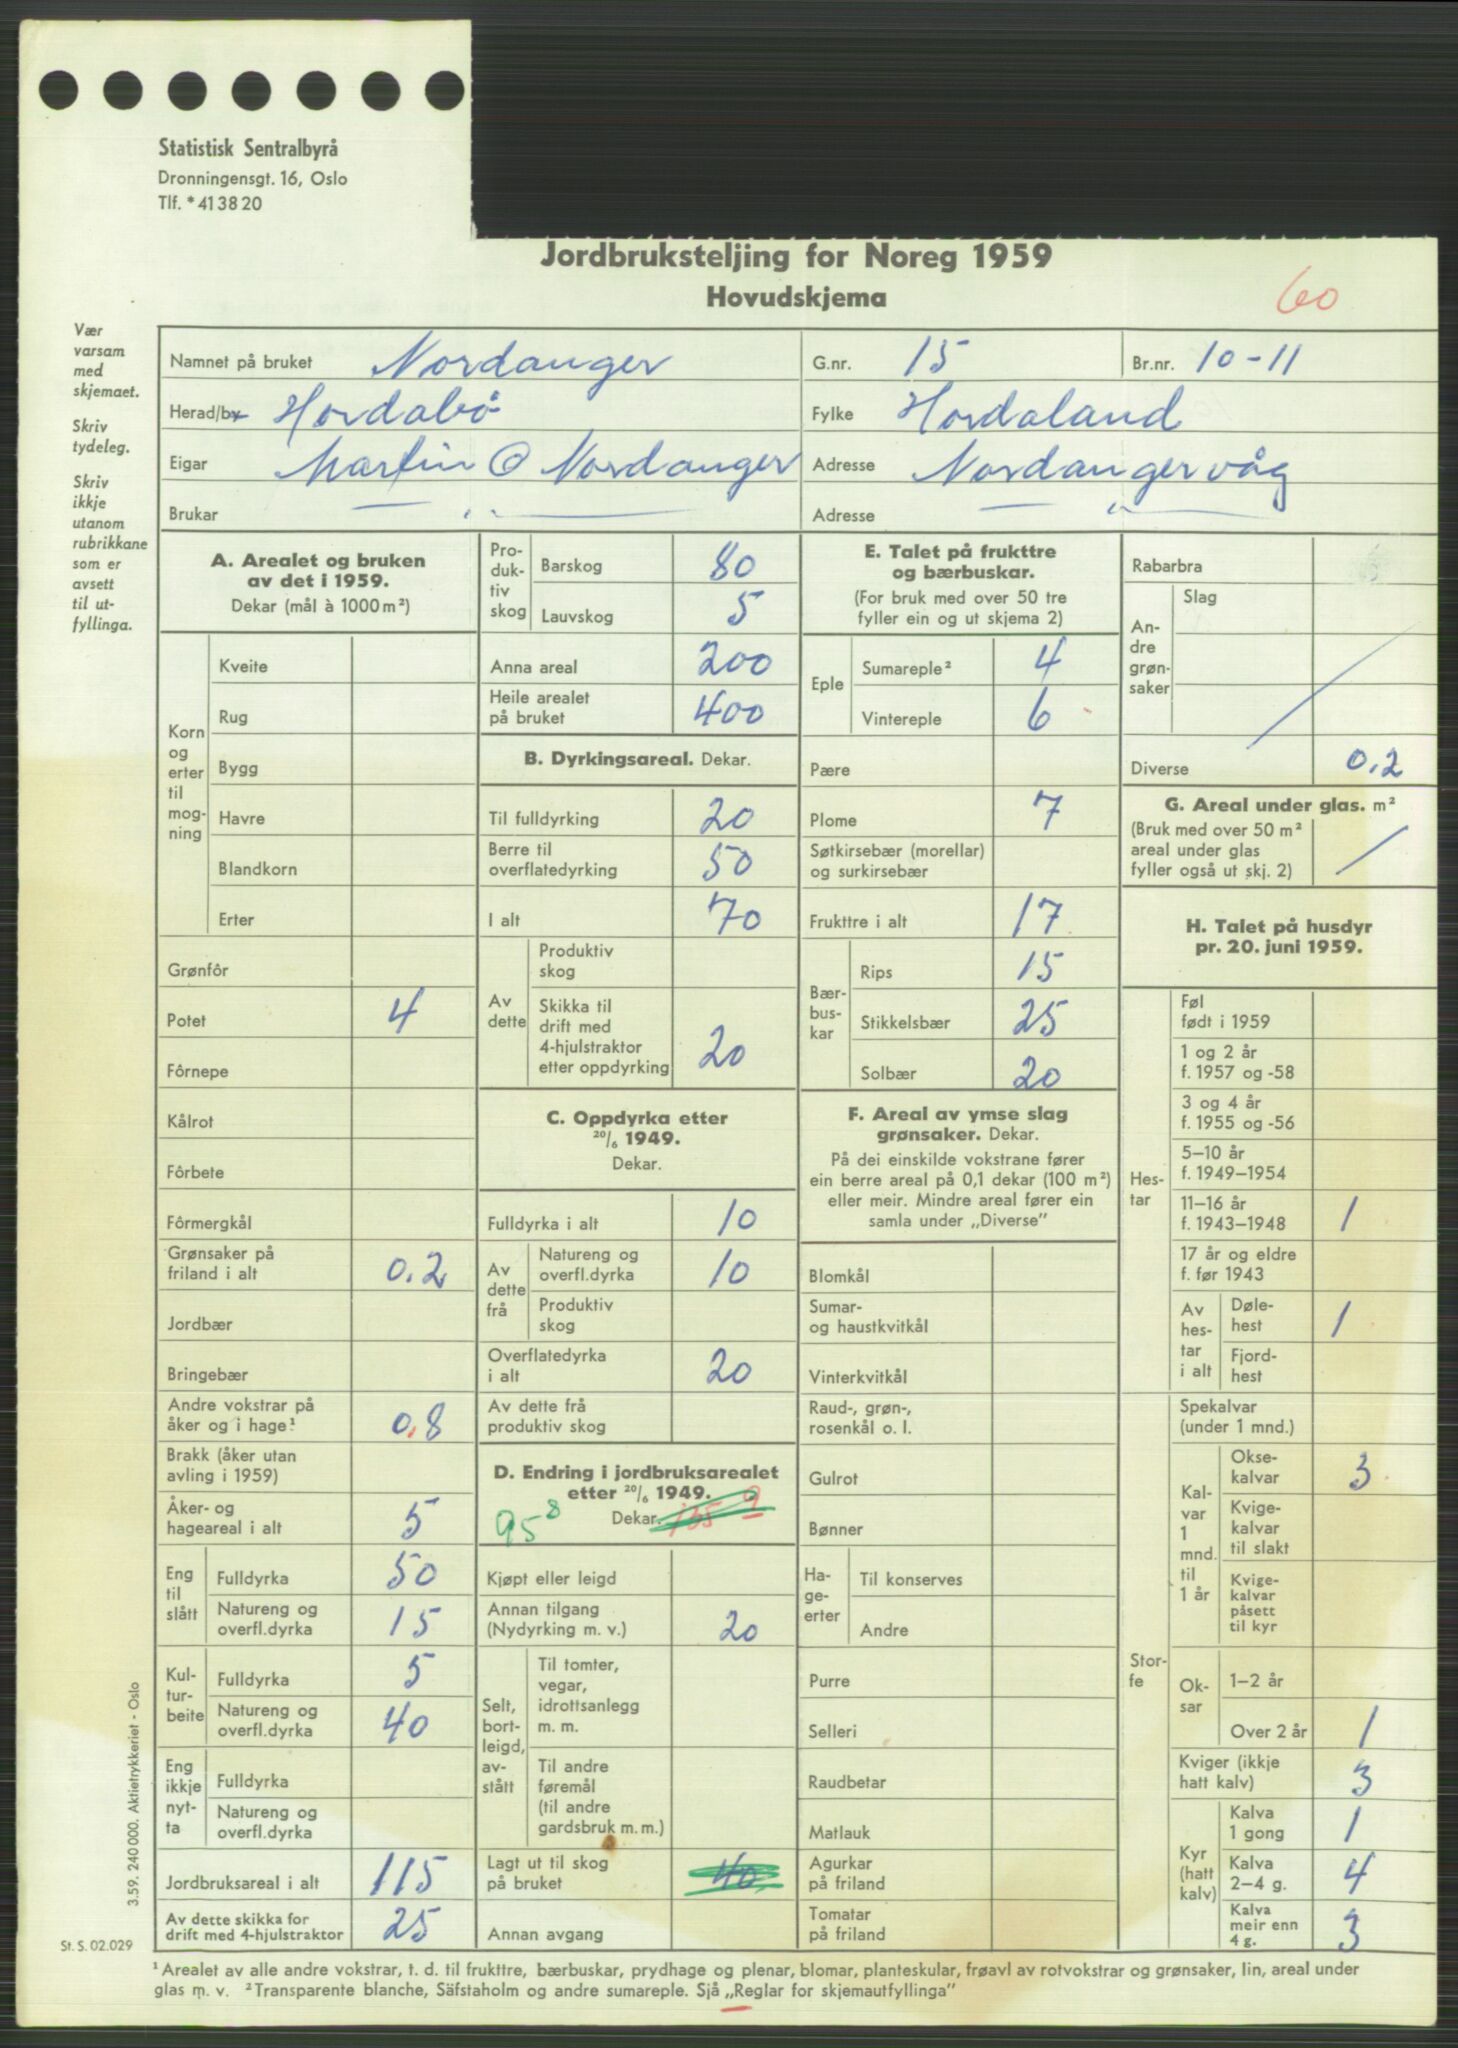 Statistisk Sentralbyrå
Dronningensgt. 16, Oslo
Tlf. *41 38 20
Jordbruksteljing for Noreg 1959
Hovudskjema
60
Vær
varsam
med
skjemaet.
Skriv
tydeleg.
Skriv
ikkje
utanom
rubrikkane
som er
avsett
til ut-
fyllinga.
Namnet på bruket Nordanger
G.nr. 15
Br.nr. 10-11
Herad/by Hordabö
Fylke Hordaland
Eigar Martin O Nordanger
Adresse Nordangervåg
Brukar — " —
Adresse — " —
A. Arealet og bruken
av det i 1959.
Dekar (mål à 1000 m²)
Korn
og
erter
til
mog-
ning
Kveite
Rug
Bygg
Havre
Blandkorn
Erter
Grønfôr
Potet 4
Fôrnepe
Kålrot
Fôrbete
Fôrmergkål
Grønsaker på
friland i alt 0.2
Jordbær
Bringebær
Andre vokstrar på
åker og i hage¹ 0.8
Brakk (åker utan
avling i 1959)
Åker- og
hageareal i alt 5
Eng
til
slått
Fulldyrka 50
Natureng og
overfl.dyrka 15
Kul-
tur-
beite
Fulldyrka 5
Natureng og
overfl.dyrka 40
Eng
ikkje
nyt-
ta
Fulldyrka
Natureng og
overfl.dyrka
Jordbruksareal i alt 115
Av dette skikka for
drift med 4-hjulstraktor 25
Pro-
duk-
tiv
skog
Barskog 80
Lauvskog 5
Anna areal 200
Heile arealet
på bruket 400
B. Dyrkingsareal. Dekar.
Til fulldyrking 20
Berre til
overflatedyrking 50
I alt 70
Av
dette
Produktiv
skog
Skikka til
drift med
4-hjulstraktor
etter oppdyrking 20
C. Oppdyrka etter
20/6 1949.
Dekar.
Fulldyrka i alt 10
Av
dette
frå
Natureng og
overfl.dyrka 10
Produktiv
skog
Overflatedyrka
i alt 20
Av dette frå
produktiv skog
D. Endring i jordbruksarealet
etter 20/6 1949.
Dekar.
95 8
Kjøpt eller leigd
Annan tilgang
(Nydyrking m. v.) 20
Selt,
bort-
leigd,
av-
stått
Til tomter,
vegar,
idrottsanlegg
m. m.
Til andre
føremål
(til andre
gardsbruk m. m.)
Lagt ut til skog
på bruket 40
Annan avgang
E. Talet på frukttre
og bærbuskar.
(For bruk med over 50 tre
fyller ein og ut skjema 2)
Eple
Sumareple² 4
Vintereple 6
Pære
Plome 7
Søtkirsebær (morellar)
og surkirsebær
Frukttre i alt 17
Bær-
bus-
kar
Rips 15
Stikkelsbær 25
Solbær 20
F. Areal av ymse slag
grønsaker. Dekar.
På dei einskilde vokstrane fører
ein berre areal på 0,1 dekar (100 m²)
eller meir. Mindre areal fører ein
samla under „Diverse”
Blomkål
Sumar-
og haustkvitkål
Vinterkvitkål
Raud-, grøn-,
rosenkål o. l.
Gulrot
Bønner
Ha-
ge-
erter
Til konserves
Andre
Purre
Selleri
Raudbetar
Matlauk
Agurkar
på friland
Tomatar
på friland
Rabarbra
An-
dre
grøn-
saker
Slag
Diverse 0.2
G. Areal under glas. m²
(Bruk med over 50 m²
areal under glas
fyller også ut skj. 2)
H. Talet på husdyr
pr. 20. juni 1959.
Hes-
tar
Føl
født i 1959
1 og 2 år
f. 1957 og -58
3 og 4 år
f. 1955 og -56
5–10 år
f. 1949–1954
11–16 år
f. 1943–1948 1
17 år og eldre
f. før 1943
Av
hes-
tar
i alt
Døle-
hest 1
Fjord-
hest
Stor-
fe
Spekalvar
(under 1 mnd.)
Kal-
var
1
mnd.
til
1 år
Okse-
kalvar 3
Kvige-
kalvar
til slakt
Kvige-
kalvar
påsett
til kyr
Ok-
sar
1–2 år
Over 2 år 1
Kviger (ikkje
hatt kalv) 3
Kyr
(hatt
kalv)
Kalva
1 gong 1
Kalva
2–4 g. 4
Kalva
meir enn
4 g. 3
3.59. 240 000. Aktietrykkeriet - Oslo
St. S. 02.029
¹ Arealet av alle andre vokstrar, t. d. til frukttre, bærbuskar, prydhage og plenar, blomar, planteskular, frøavl av rotvokstrar og grønsaker, lin, areal under
glas m. v. ² Transparente blanche, Säfstaholm og andre sumareple. Sjå „Reglar for skjemautfyllinga”